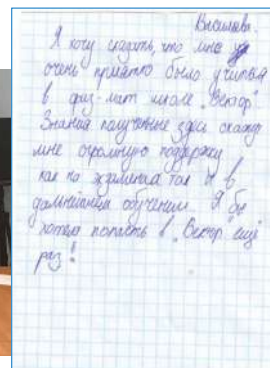 Я хочу сказать, что мне
очень приятно было учиться
в физ-мат школе "Вектор".
Знания полученные здесь окажут
мне огромную поддержку
как на экзаменах так и в
дальнейшем обучении. Я бы
хотела попасть в "Вектор" ещё
раз!